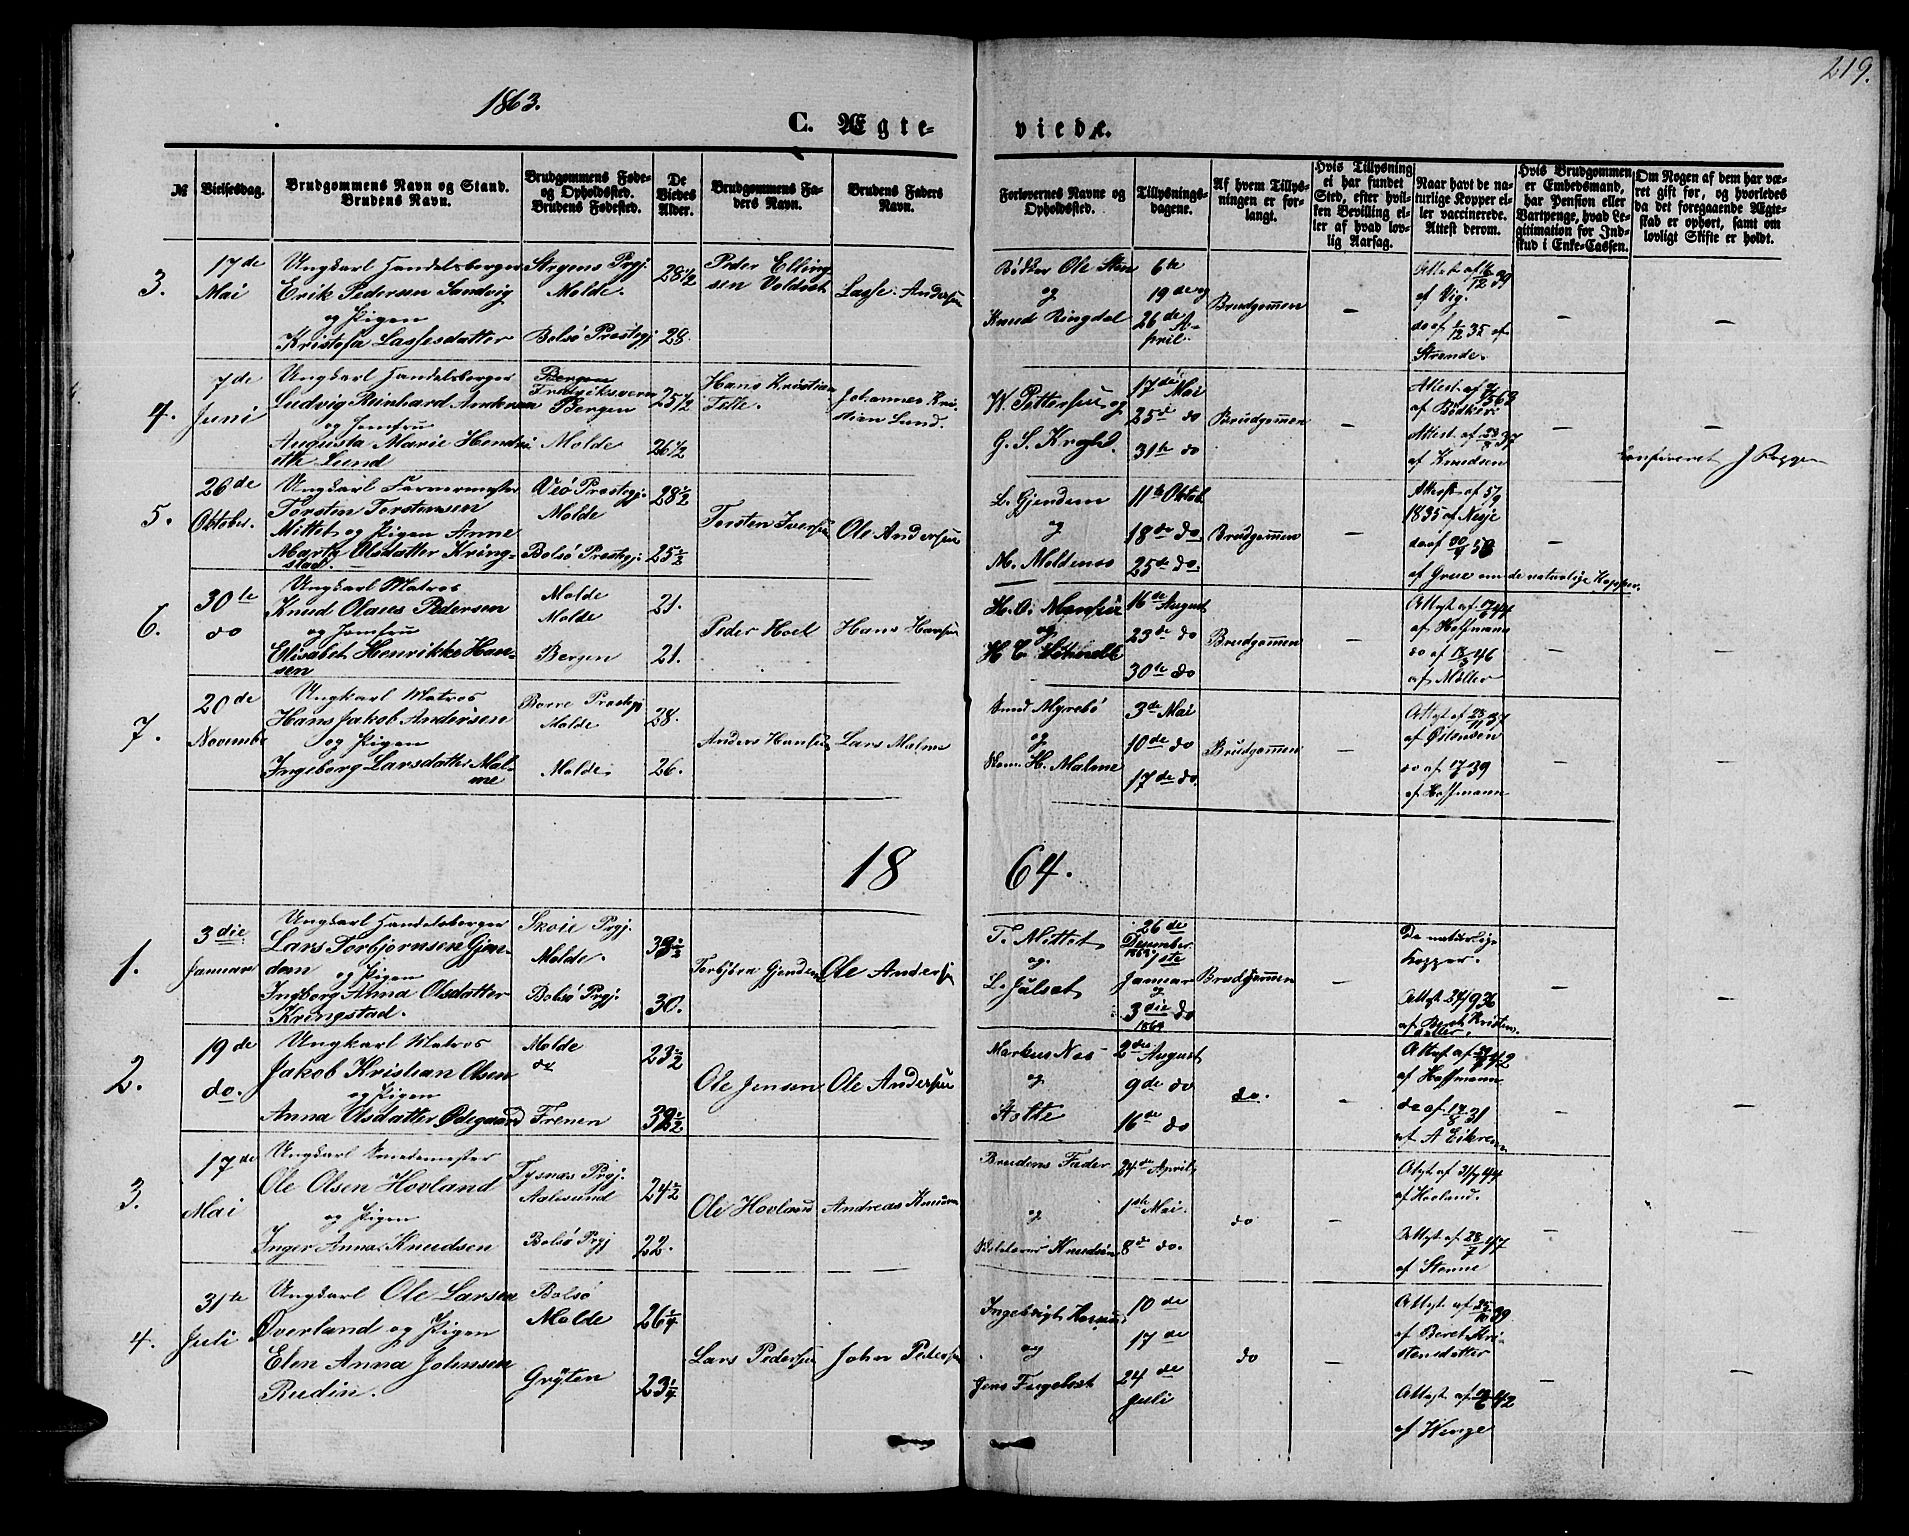 219.
1863.
C. Ægte-
viede.
№
Vielsesdag.
Brudgommens Navn og Stand.
Brudens Navn.
Brudgommens Føde-
og Opholdssted.
Brudens Fødested.
De
Viedes
Alder.
Brudgommens Fa-
ders Navn.
Brudens Faders
Navn.
Forlovernes Navne og
Opholdssted.
Tillysnings-
dagene.
Af hvem Tillys-
ningen er for-
langt.
Hvis Tillysning
ei har fundet
Sted, efter hvil-
ken Bevilling el-
ler af hvad lov-
lig Aarsag.
Naar havt de na-
turlige Kopper el-
ler vaccinerede.
Attest derom.
Hvis Brudgommen
er Embedsmand,
har Pension eller
Vartpenge, hvad Le-
gitimation for Ind-
skud i Enke-Cassen.
Om Nogen af dem har væ-
ret gift før, og hvorledes
da det foregaaende Ægte-
skab er ophørt, samt om
lovligt Skifte er holdt.
3.
17de
Mai
Ungkarl Handelsborger
Erik Pedersen Sandvig
og Pigen
Kristofa Lassesdatter
Prgj.
Molde.
Bolsø Prestegj
28 1/2
28.
Peder Elling
sen Voldset
Lasse Andersen
Bødker Ole Sten
og
Knud Ringdal
6te
19de og
26de A-
pril.
Brudgommen
—
Attest af 16/12 39
af Vig.
do af 1/12 35 af
Strande.
—
—
4.
7de
Juni
Ungkarl Handelsborger
Ludvig Reinhard Andersen
og Jomfru
Augusta Marie Hendri-
ette Lund
Bergen
Fredriksværn
Bergen
Molde
25 1/2
26 1/2
Hans Kristian
Johannes Kri-
stian Lund.
W. Pettersen og
G. S. Krohg.
17de Mai
25de do
31te do
Brudgommen
—
Attest af
af Bødker
Attest af 23/8 37
af Knudsen
—
—
5.
26de
Oktober.
Ungkarl Farvermester
Torsten Torstensen
Mittet og Pigen Anne
Marta Olsdatter Kring-
stad.
Veø Prestegj.
Molde
Bolsø Prestegj.
28 1/2
25 1/2
Torsten Iversen
Ole Andersen
L. Gjendem
og
M. Moldenes
11te Oktob.
18de do
25de do.
Brudgommen
—
Attest af 5/9
1835 af Nesje
do af
af Grue om de naturlige Kopper.
—
6.
30te
do
Ungkarl Matros
Knud Olaus Pedersen
og Jomfru
Elisabet Henrikke Han-
sen
Molde
Molde
Bergen
21.
21.
Peder Hoel
Hans Hansen
H. O. Hansen
og
16de August
23de do
30te do
Brudgommen
—
Attest af
af Hoffmann
do af 46
af Møller
—
—
7.
20de
Novembr
Ungkarl Matros
Hans Jakob Andersen
og Pigen
Ingeborg Larsdatter Mal-
me
Borre Prestegj
Molde
Molde
28.
26.
Anders Hansen
Lars Malme
Knud Myrebø
og
H. Malme
3de Mai
10de do
17de do.
Brudgommen
—
Attest af 23/11 37
af Østensen
do af 17/39
af Hoffmann
—
—
18
64.
1.
3die
Januar
Ungkarl Handelsborger
Lars Torbjørnsen Gjen-
dem
og Pigen
Ingborg Anna Olsdatter
Kringstad.
Skoie Prgj.
Molde.
Bolsø Prgj.
30.
Torbjörn Gjendem
Ole Andersen
T. Mittet
og
L. Julset
26de
December
1863
1ste
Januar
og
3die do
1864
Brudgommen
—
De naturlige
Kopper.
Attest 24/9 36
af Berit Kristens-
datter.
—
—
2.
19de
do.
Ungkarl Matros
Jakob Kristian Olsen
og Pigen
Anna Olsdatter Ødegaard
Molde
do
Frenen
23 1/2
Ole Jensen
Ole Andersen
Markus Næs
og
2den August
9de do
16de do
do.
—
Attest af 42
af Hoffmann
do af 14/8 31
af A Eikrem
—
—
3.
17de
Mai
Ungkarl Smedemester
Ole Olsen Hovland
og Pigen
Inger Anna Knudsen
Tysnæs Prgj.
Aalesund
Bolsø Prgj
24 1/2
22.
Ole Hovland
Andreas Knudsen
Brudens Fader
og
Knudsen
24de April
1ste Mai.
8de do.
do
—
Attest af 31/7 44
af Hovland.
Attest af 28/7 47
af Stenne
—
—
4.
31te
Juli
Ungkarl Ole Larsen
Øverland og Pigen
Elen Anna Johnsen
Rudin.
Bolsø
Molde
Gryten
26 1/4
23 1/4
Lars Pedersen
John Pedersen
Ingebrigt
og
Jens Fugelset
10de
17de
24de
Juli
do
—
Attest af 25/10 39
af Beret Kri-
stensdatter
Attest af 42
af Winge
—
—